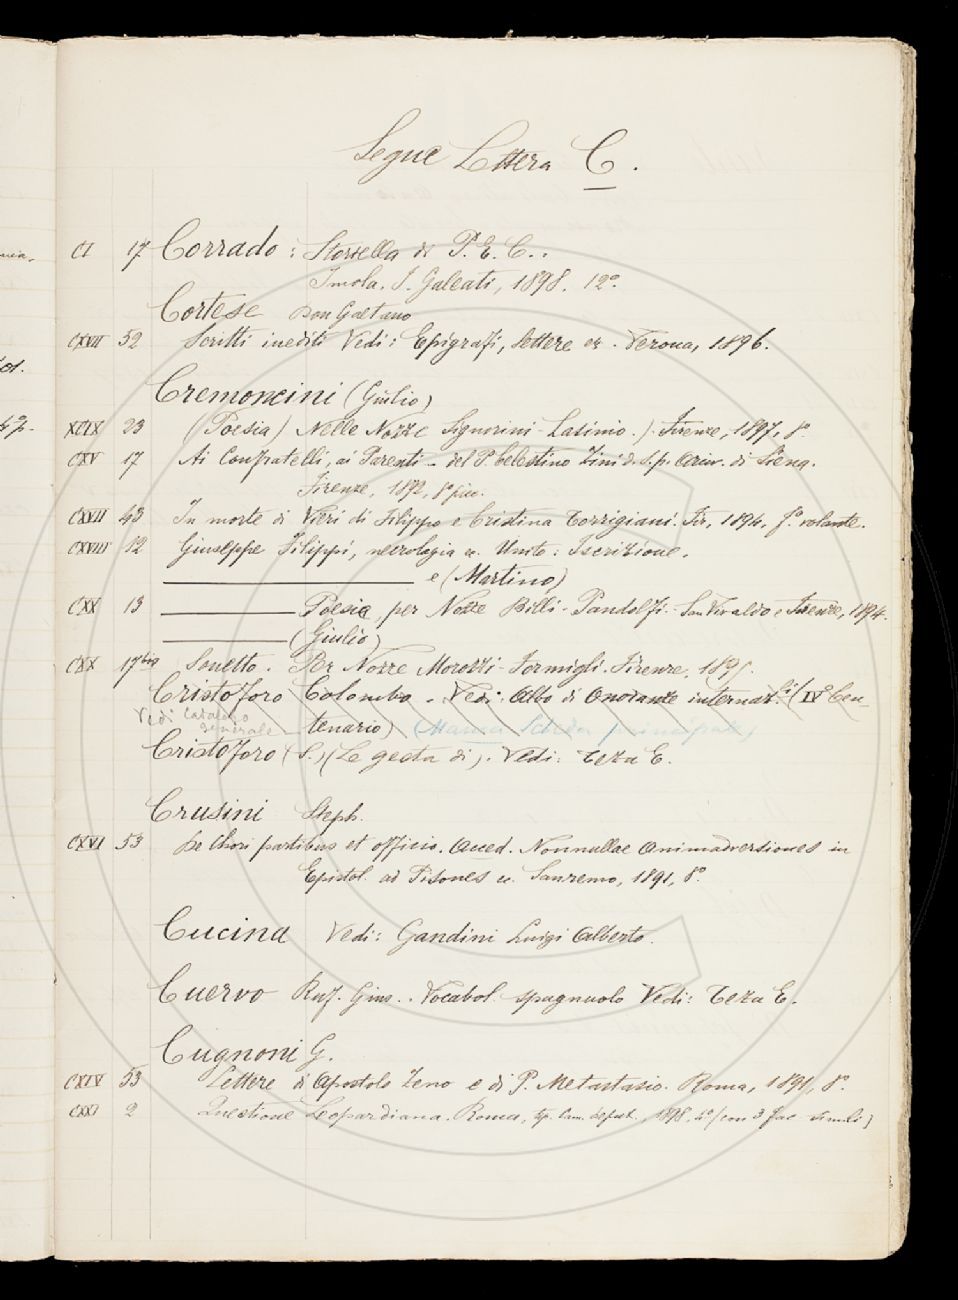 Segue Lettera C.
CI 17 Corrado: Storiella di P. E. C..
Imola. I. Galeati, 1898. 12°.
Cortese Don Gaetano
CXVII 52 Scritti inediti Vedi: Epigrafi, lettere ec. Verona, 1896.
Cremoncini (Giulio)
XCIX 23 (Poesia) Nelle Nozze Signorini-Lasinio.). Firenze, 1897, 8°
CXV 17 Ai Confratelli, ai Parenti - del P. Celestino Zini d. S. p. Arciv. di Siena.
Firenze, 1892, 8° picc.
CXVII 43 In morte di Vieri di Filippo e Cristina Torrigiani. Fir, 1894, f.° volante.
CXVIII 12 Giuseppe Filippi, necrologia ec. Unito: Iscrizione.
e (Martino)
CXX 13 Poesia, per Nozze Billi-Pandolfi. San Vivaldo e Firenze, 1894.
(Giulio)
CXX 17 bis Sonetto. Per Nozze Morozzi-Formigli. Firenze,
Cristoforo Colombo. Vedi: Albo di Onoranze internaz.li (IV° Cen-
Vedi Catalogo
generale
tenario) (Manca Scheda principale)
Cristoforo (S.) (Le gesta di). Vedi: Teza E.
Crusini Steph.
CXVI 53 De Chori partibus et officio. Acced. Nonnullae Animadversiones in
Epistol. ad Pisones ec. Sanremo, 1891, 8°
Cucina Vedi: Gandini Luigi Alberto.
Cuervo Ruf. Gius.. Vocabol. spagnuolo Vedi: Teza E.
Cugnoni G.
CXIV 53 Lettere di Apostolo Zeno e di P. Metastasio. Roma, 1891, 8°.
CXXI 2 Questione Leopardiana. Roma, tip. Cam. deput., 1898. 4° (con 3 fac-simili)